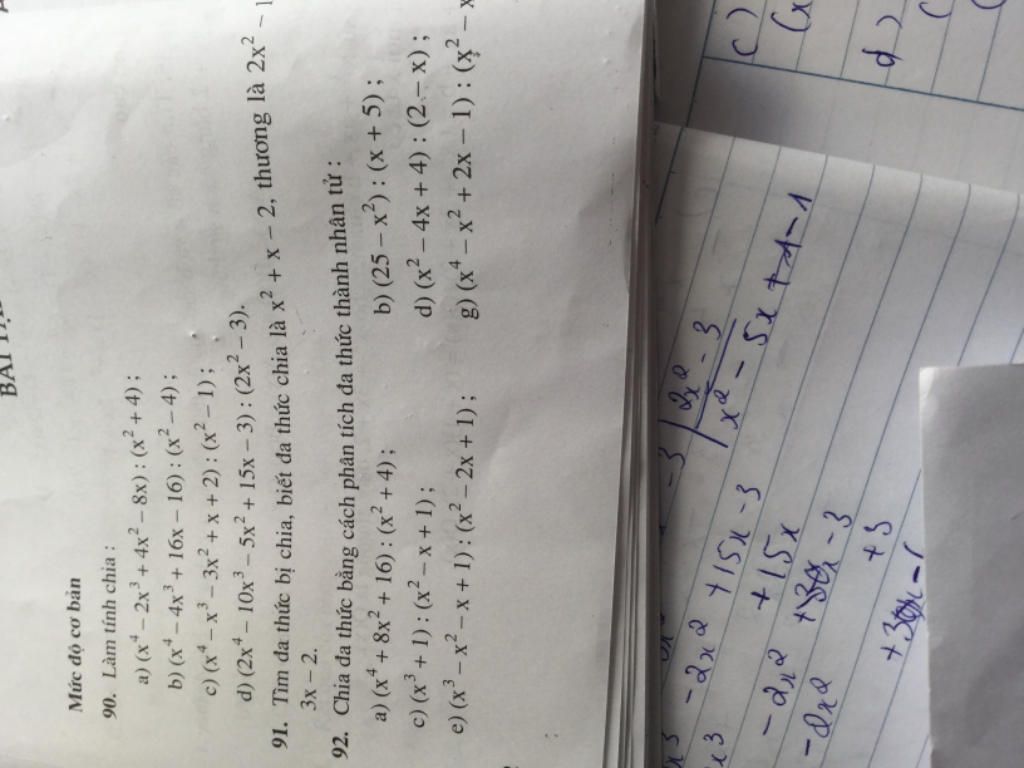 Mức độ cơ bản
90. Làm tính chia :
a) (x⁴ – 2x³ + 4x² – 8x) : (x² + 4) ;
b) (x⁴ – 4x³ + 16x – 16) : (x² – 4) ;
c) (x⁴ – x³ – 3x² + x + 2) : (x² – 1) ;
d) (2x⁴ – 10x³ – 5x² + 15x – 3) : (2x² – 3).
91. Tìm đa thức bị chia, biết đa thức chia là x² + x – 2, thương là 2x² –
3x – 2.
92. Chia đa thức bằng cách phân tích đa thức thành nhân tử :
a) (x⁴ + 8x² + 16) : (x² + 4) ; b) (25 – x²) : (x + 5) ;
c) (x³ + 1) : (x² – x + 1) ; d) (x² – 4x + 4) : (2 – x) ;
e) (x³ – x² – x + 1) : (x² – 2x + 1) ; g) (x⁴ – x² + 2x – 1) : (x² – x
– 3 2x² – 3
– 2x² + 15x – 3 x² – 5x – 1
– 2x² + 15x
– 2x² – 3
+ 3
c)
(x
d)
(